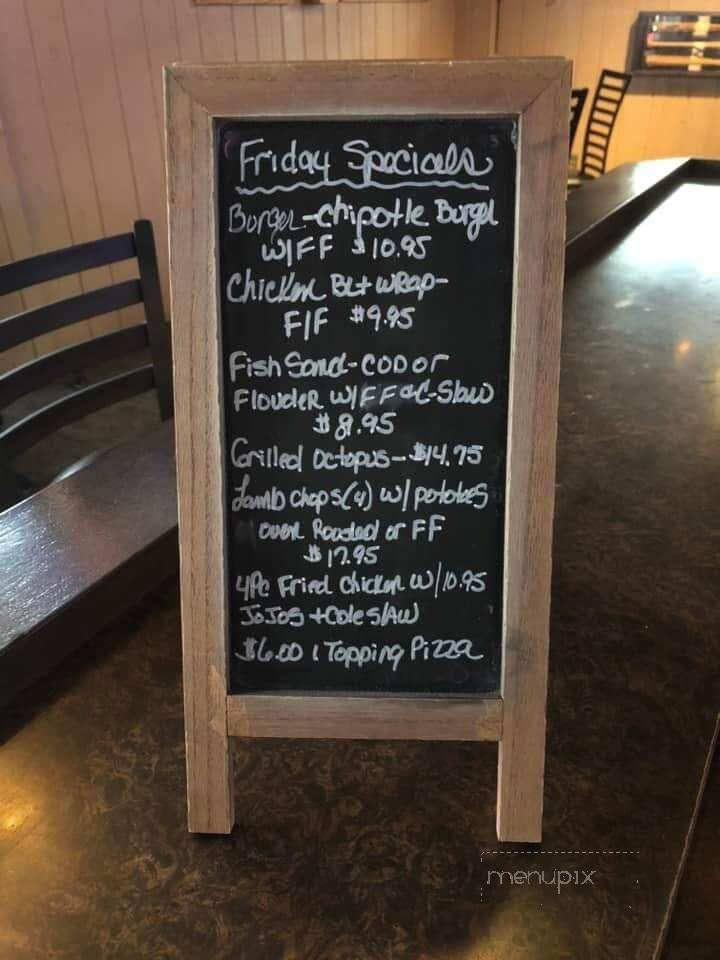 Friday Specials
Burger-chipotle Burger
W/FF $10.95
Chicken BLT WRap-
F/F $9.95
Fish Sand-COD or
Flouder W/FF & C-Slaw
$8.95
Grilled Octopus-$14.95
Lamb chops(4) w/potatoes
oven Roasted or FF
$17.95
4Pc Fried Chicken w/10.95
JoJos + Coleslaw
$6.00 1 Topping Pizza
menupix